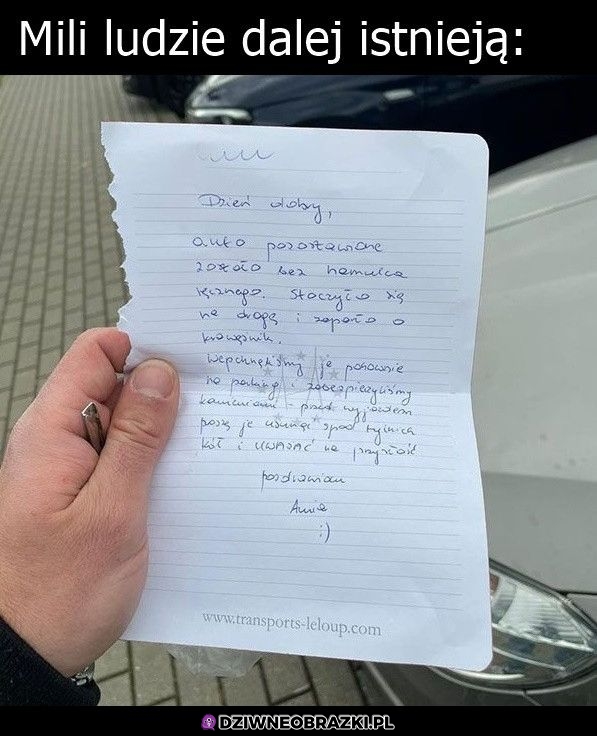 Mili ludzie dalej istnieją:
Dzień dobry,
auto pozostawione
zostało bez hamulca
ręcznego. Stoczyło się
na drogę i zaparło o
krawężnik.
Wepchnęliśmy je ponownie
na parking i zabezpieczyliśmy
kamieniami. przed wyjazdem
proszę je usunąć spod tylnich
kół i UWAŻAĆ na przyszłość
pozdrawiam
Ania
:)
www.transports-leloup.com
DZIWNEOBRAZKI.PL